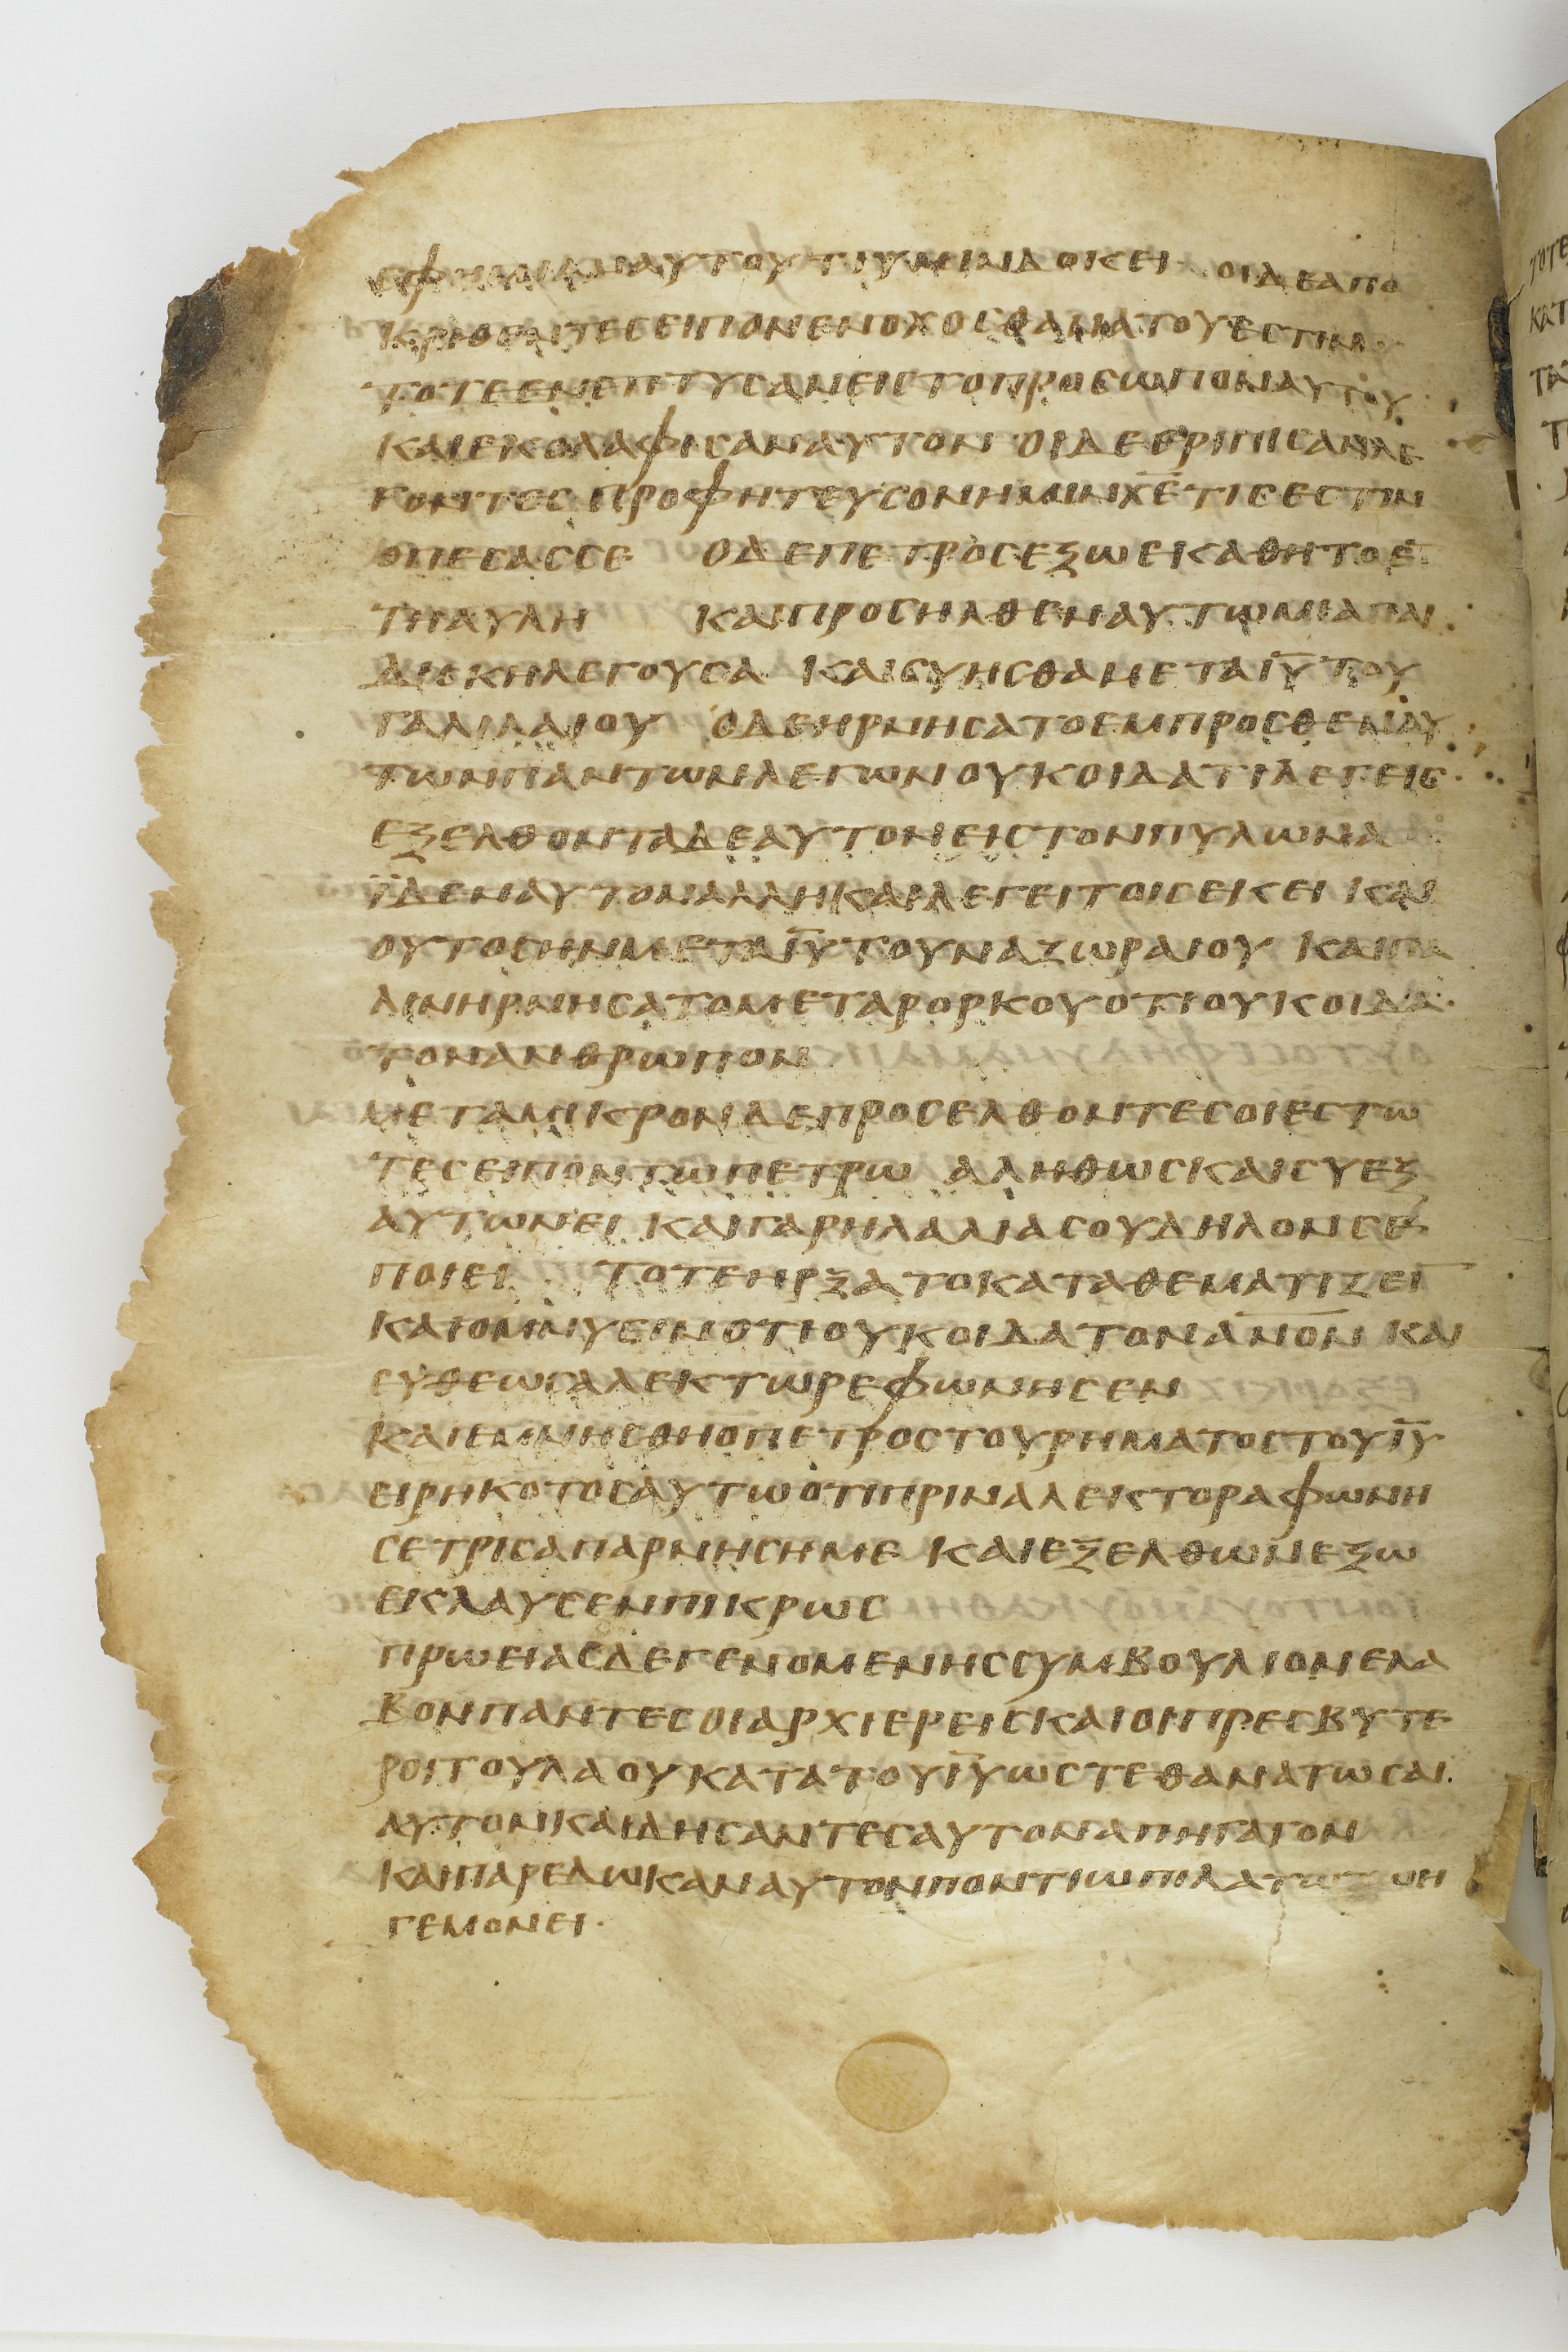 ΦΗΜΙΑΝΑΥΤΟΥΤΙΥΜΙΝΔΟΚΕΙ ΟΙΔΕΑΠΟ
ΚΡΙΘΕΝΤΕΣΕΙΠΟΝΕΝΟΧΟΣΘΑΝΑΤΟΥΕΣΤΙΝ
ΤΟΤΕΕΝΕΠΤΥΣΑΝΕΙΣΤΟΠΡΟΣΩΠΟΝΑΥΤΟΥ
ΚΑΙΕΚΟΛΑΦΙΣΑΝΑΥΤΟΝ ΟΙΔΕΕΡΙΠΙΣΑΝΛΕ
ΓΟΝΤΕΣ ΠΡΟΦΗΤΕΥΣΟΝΗΜΙΝΧ̅Ε̅ΤΙΣΕΣΤΙΝ
ΟΠΕΣΑΣΣΕ ΟΔΕΠΕΤΡΟΣΕΞΩΕΚΑΘΗΤΟΕ̅
ΤΗΑΥΛΗ ΚΑΙΠΡΟΣΗΛΘΕΝΑΥΤΩΜΙΑΠΑΙ
ΔΙΣΚΗΛΕΓΟΥΣΑ ΚΑΙΣΥΗΣΘΑΜΕΤΑΙ̅Υ̅ΤΟΥ
ΓΑΛΙΛΑΙΟΥ ΟΔΕΗΡΝΗΣΑΤΟΕΜΠΡΟΣΘΕΝΑΥ
ΤΩΝΠΑΝΤΩΝΛΕΓΩΝΟΥΚΟΙΔΑΤΙΛΕΓΕΙΣ
ΕΞΕΛΘΟΝΤΑΔΕΑΥΤΟΝΕΙΣΤΟΝΠΥΛΩΝΑ
ΪΔΕΝΑΥΤΟΝΑΛΛΗΚΑΙΛΕΓΕΙΤΟΙΣΕΚΕΙ ΚΑΙ
ΟΥΤΟΣΗΝΜΕΤΑΙ̅Υ̅ΤΟΥΝΑΖΩΡΑΙΟΥ ΚΑΙΠΑ
ΛΙΝΗΡΝΗΣΑΤΟΜΕΤΑΡΟΡΚΟΥΟΤΙΟΥΚΟΙΔΑ
ΤΟΝΑΝΘΡΩΠΟΝ
ΜΕΤΑΜΙΚΡΟΝΔΕΠΡΟΣΕΛΘΟΝΤΕΣΟΙΕΣΤΩ
ΤΕΣΕΙΠΟΝΤΩΠΕΤΡΩ ΑΛΗΘΩΣΚΑΙΣΥΕΞ
ΑΥΤΩΝΕΙ ΚΑΙΓΑΡΗΛΑΛΙΑΣΟΥΔΗΛΟΝΣΕ
ΠΟΙΕΙ ΤΟΤΕΗΡΞΑΤΟΚΑΤΑΘΕΜΑΤΙΖΕΙ̅
ΚΑΙΟΜΝΥΕΙΝΟΤΙΟΥΚΟΙΔΑΤΟΝΑ̅Ν̅Ο̅Ν̅ ΚΑΙ
ΕΥΘΕΩΣΑΛΕΚΤΩΡΕΦΩΝΗΣΕΝ
ΚΑΙΕΜΝΗΣΘΗΟΠΕΤΡΟΣΤΟΥΡΗΜΑΤΟΣΤΟΥΙ̅Υ̅
ΕΙΡΗΚΟΤΟΣΑΥΤΩΟΤΙΠΡΙΝΑΛΕΚΤΟΡΑΦΩΝΗ
ΣΕΤΡΙΣΑΠΑΡΝΗΣΗΜΕ ΚΑΙΕΞΕΛΘΩΝΕΞΩ
ΕΚΛΑΥΣΕΝΠΙΚΡΩΣ
ΠΡΩΕΙΑΣΔΕΓΕΝΟΜΕΝΗΣΣΥΜΒΟΥΛΙΟΝΕΛΑ
ΒΟΝΠΑΝΤΕΣΟΙΑΡΧΙΕΡΕΙΣΚΑΙΟΙΠΡΕΣΒΥΤΕ
ΡΟΙΤΟΥΛΑΟΥΚΑΤΑΤΟΥΙ̅Υ̅ΩΣΤΕΘΑΝΑΤΩΣΑΙ
ΑΥΤΟΝΚΑΙΔΗΣΑΝΤΕΣΑΥΤΟΝΑΠΗΓΑΓΟΝ
ΚΑΙΠΑΡΕΔΩΚΑΝΑΥΤΟΝΠΟΝΤΙΩΠΙΛΑΤΩΤΩΗ
ΓΕΜΟΝΕΙ·